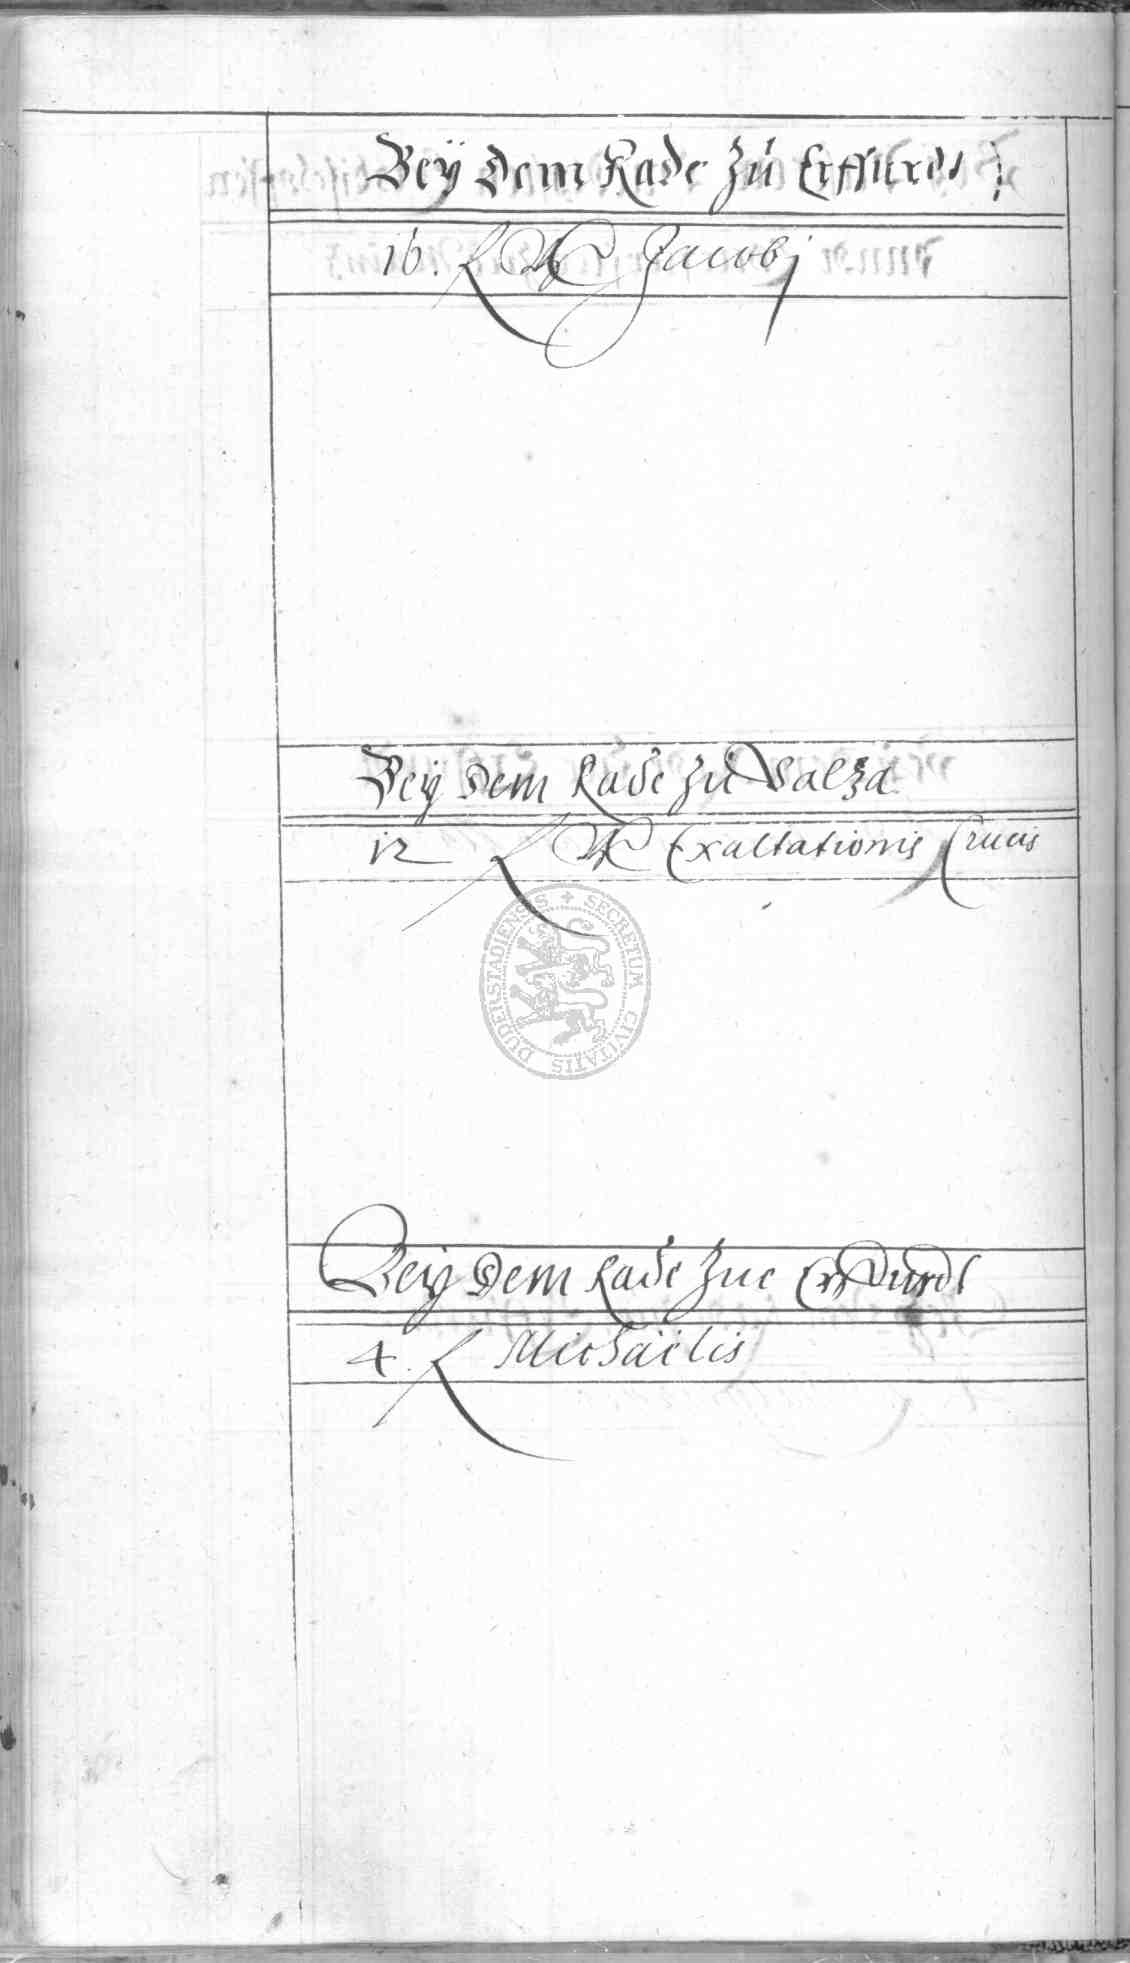 Beÿ dem Rade zu Erffurdt
16. f Jacobj
Beÿ dem Rade zu Salza
12 f Exaltationis Crucis
SECRETUM CIVITATIS DUDERSTADIENSIS
Beÿ dem Rade zue Erffurdt
4. f Michaëlis